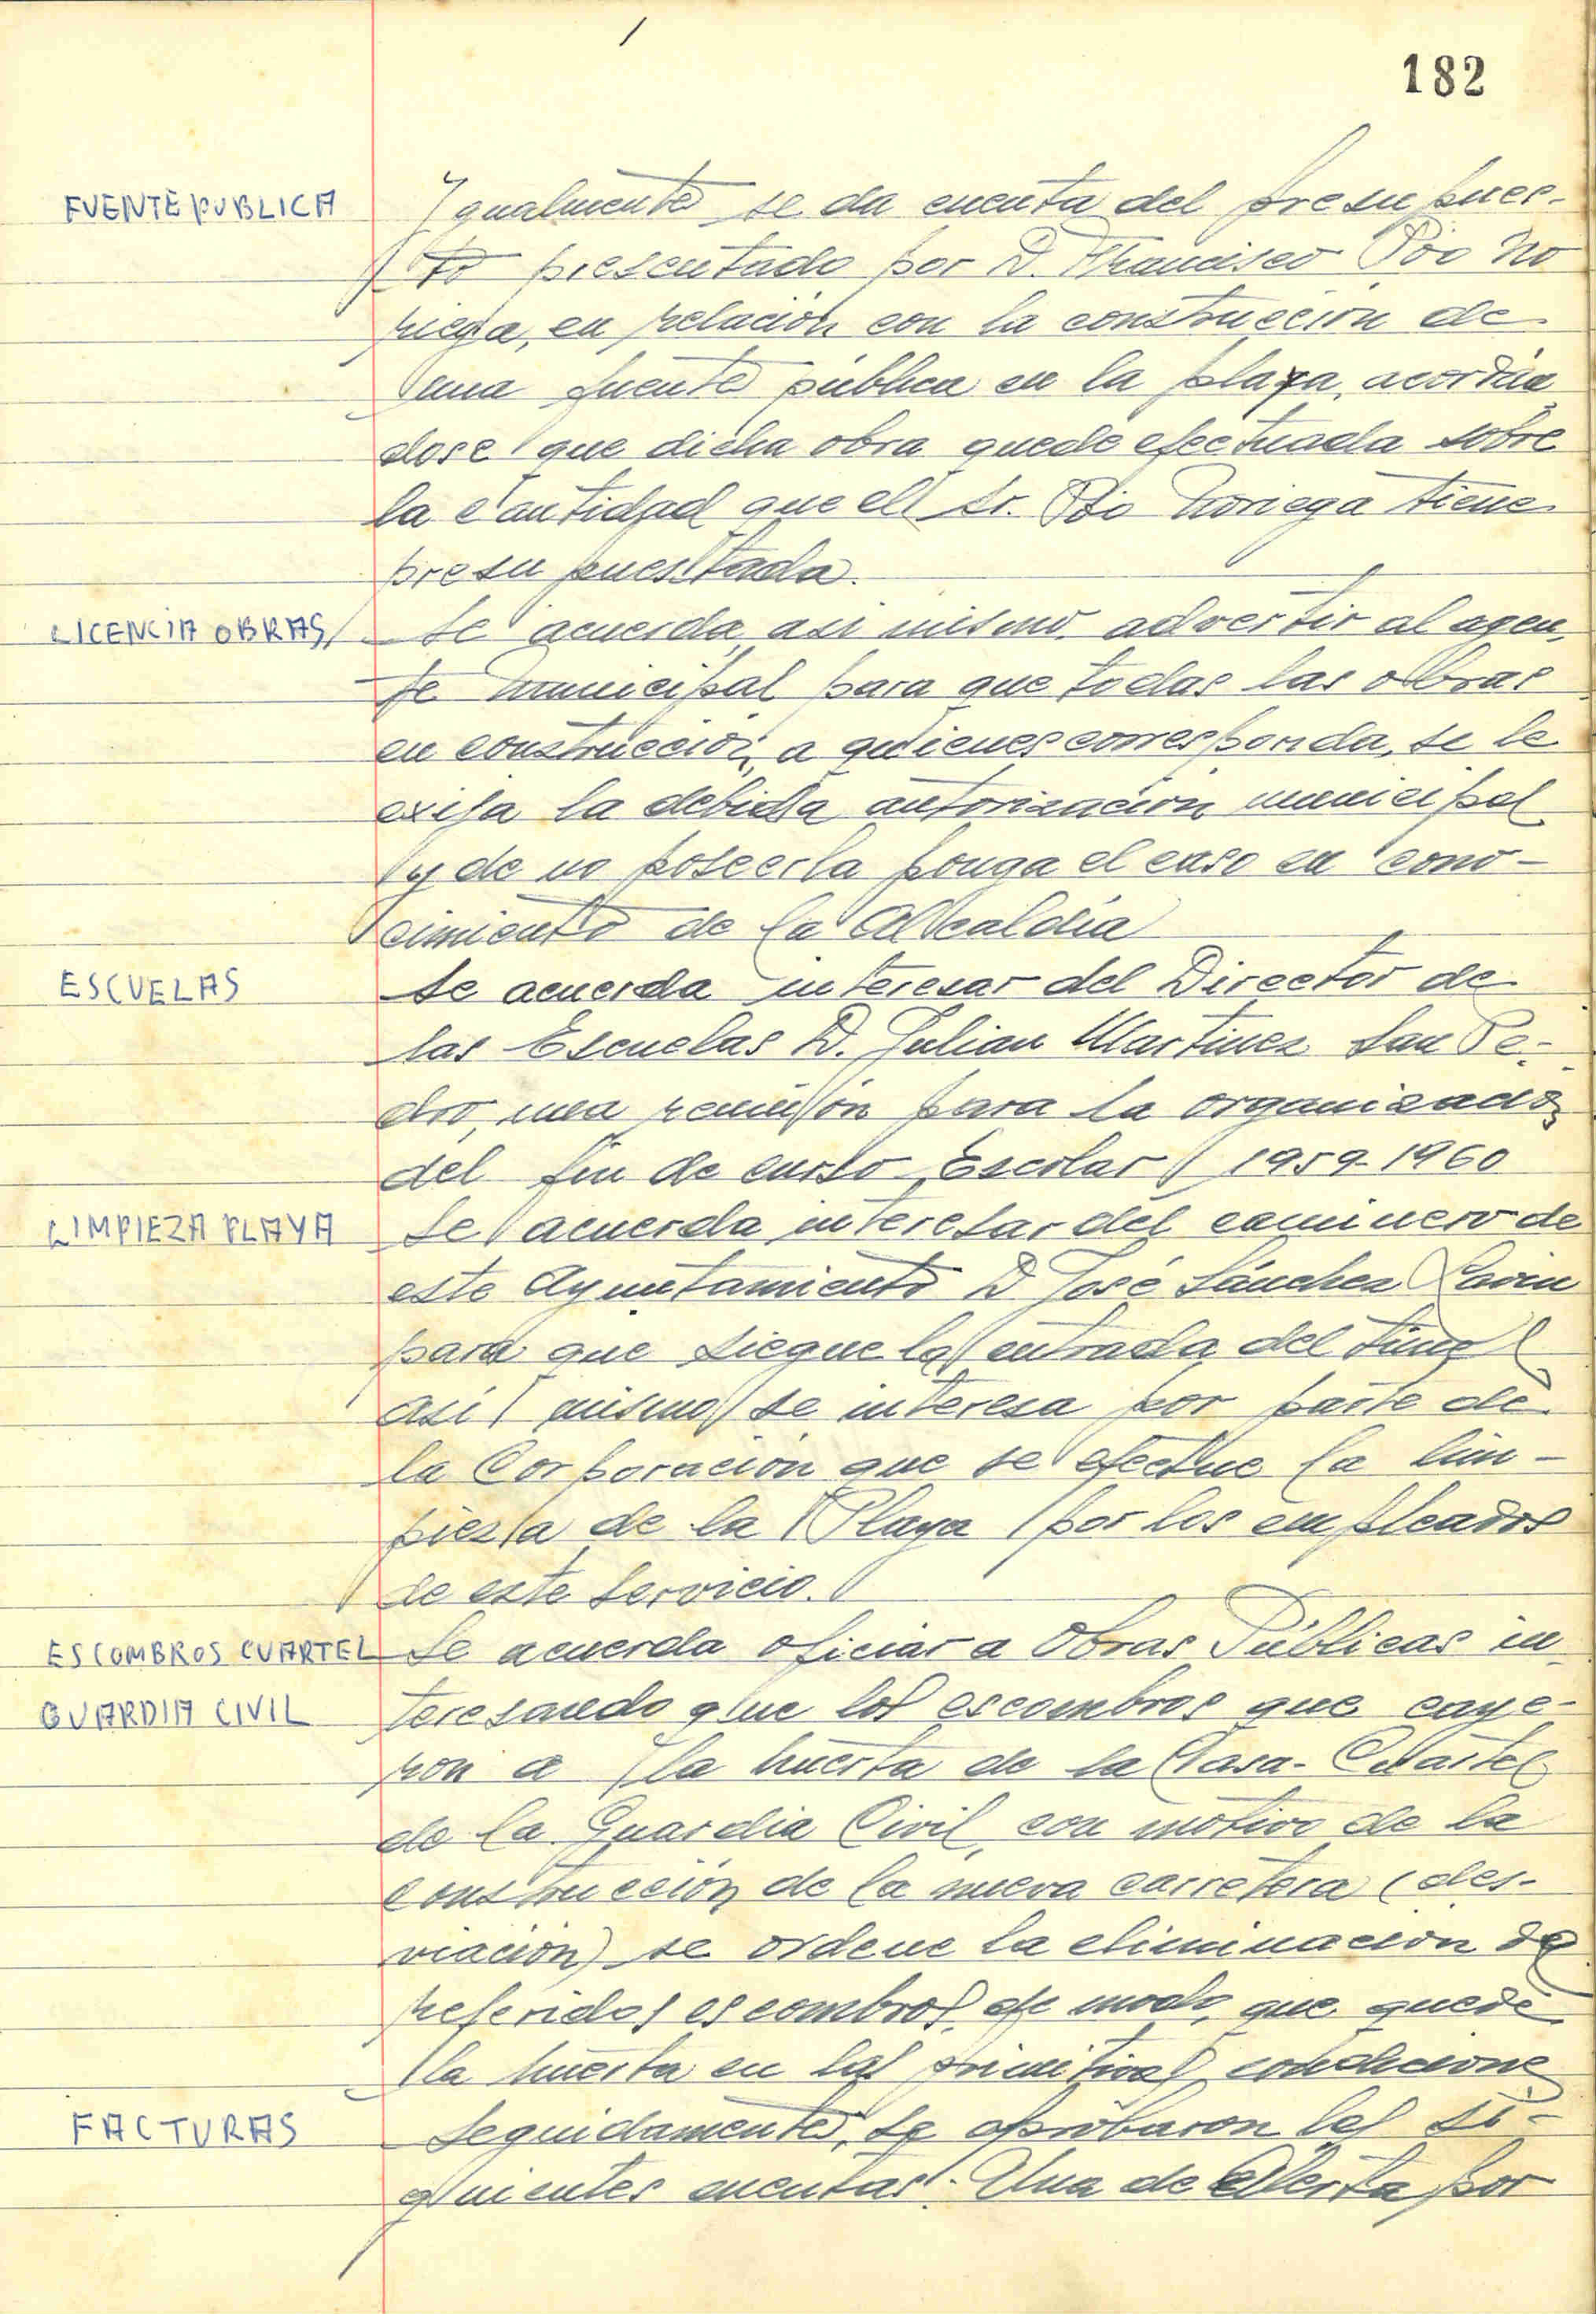 182
FUENTE PUBLICA
Igualmente se da cuenta del presupues-
to presentado por D. Francisco Pio No
riega, en relación con la construcción de
una fuente pública en la playa, acordán
dose que dicha obra quede efectuada sobre
la cantidad que el Sr. Pio Noriega tiene
presupuestada.
LICENCIA OBRAS
Se acuerda, asi mismo, advertir al agen-
te municipal para que todas las obras
en construcción, a quienes corresponda, se le
exija la debida autorización municipal
y de no poseerla ponga el caso en cono-
cimiento de la Alcaldía
ESCUELAS
Se acuerda interesar del Director de
las Escuelas D. Julian Martinez San Pe-
dro, una reunión para la organizado
del fin de curso Escolar 1959-1960
LIMPIEZA PLAYA
Se acuerda interesar del caminero de
este Ayuntamiento D José Sánchez
para que siegue la entrada del
así mismo se interesa por parte de
la Corporación que se efectue la lim-
pieza de la Playa por los empleados
de este servicio.
ESCOMBROS CUARTEL
GUARDIA CIVIL
Se acuerda oficiar a Obras Públicas in-
teresando que los escombros que caye-
ron a la huerta de la Casa-Cuartel
de la Guardia Civil, con motivo de la
construcción de la nueva carretera (des-
viación) se ordene la eliminación de
referidos escombros, de modo, que quede
la huerta en las primitivas condiciones
FACTURAS
Seguidamente, se aprobaron las si-
guientes cuentas: Una de por